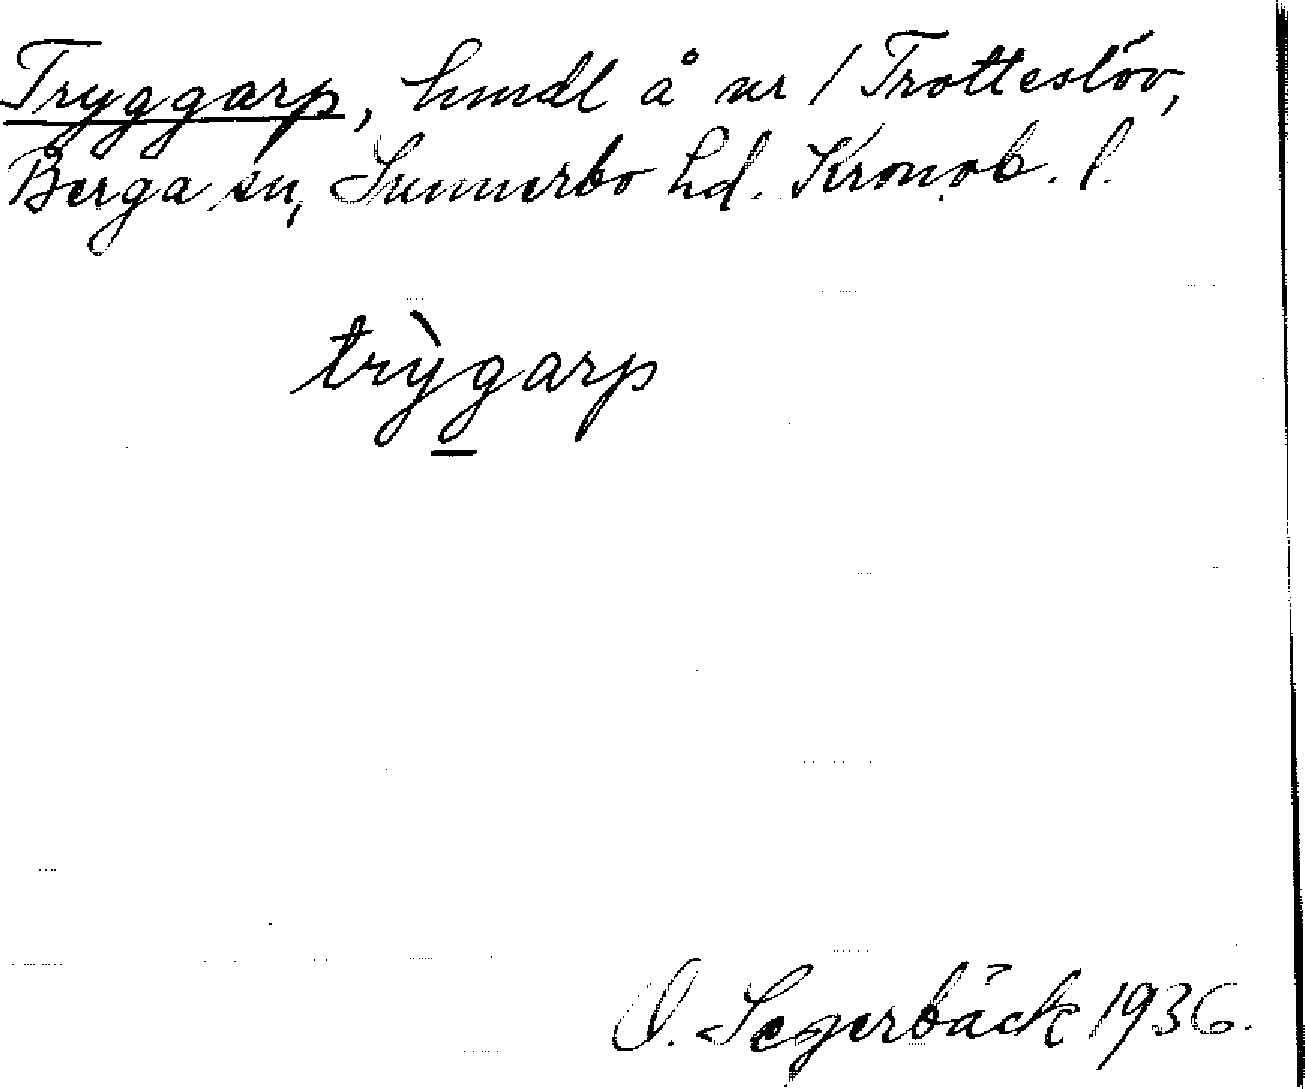 Tryggarp, hmdl å nr 1 Trotteslöv,
Berga sn, Sunnerbo hd. Kronob. l.
trỳgarp
O. Segerbäck 1936.